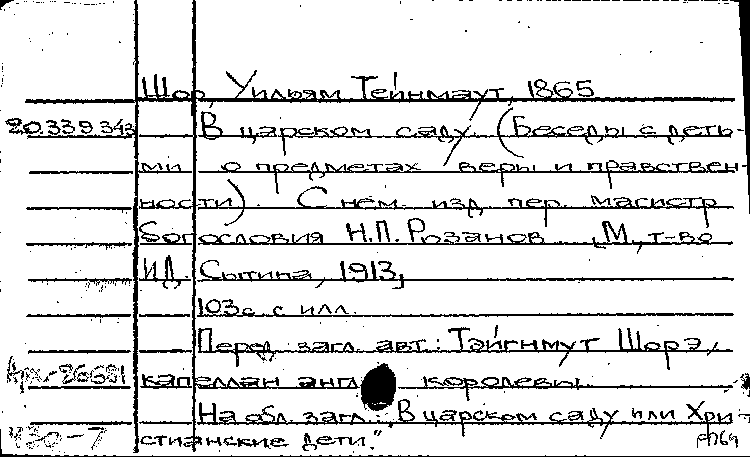 Шор, Уильям Тейнмаут, 1865
20.339.343 В царском саду. (Беседы с деть-
ми о предметах веры и нравствен-
ности). С нем. изд. пер. магистр
богословия Н.П. Розанов. М., т-во
И.Д. Сытина, 1913,
103 с. с илл.
Перед загл. авт.: Тэйгнмут Шорэ,
капеллан англ. королевы.
На обл. загл.: "В царском саду или Хри-
430-7 стианские дети."